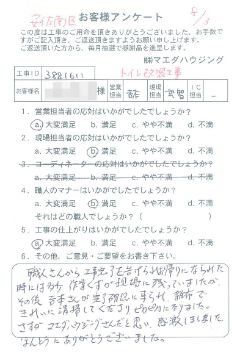 安佐南区
お客様アンケート
この度は工事のご用命を頂きありがとうございました。お手数で
すがご記入頂き、ご返送頂きますようお願い申し上げます。
ご返送頂いた方から、毎月抽選で感謝品を進呈します。
㈱マエダハウジング
工事ID 3881611
トイレ改装工事
お客様名 様 営業担当 現場担当
1. 営業担当者の応対はいかがでしたでしょうか?
a. 大変満足 b. 満足 c. やや不満 d. 不満
2. 現場担当者の応対はいかがでしたでしょうか?
a. 大変満足 b. 満足 c. やや不満 d. 不満
3. コーディネーターの応対はいかがでしたでしょうか?
a. 大変満足 b. 満足 c. やや不満 d. 不満
4. 職人のマナーはいかがでしたでしょうか?
a. 大変満足 b. 満足 c. やや不満 d. 不満
それはどの職人でしょうか?( )
5. 工事の仕上がりはいかがでしたでしょうか?
a. 大変満足 b. 満足 c. やや不満 d. 不満
6. その他、ご意見・ご感想などをお書き下さい。
職人さんから工事完了を告げられお帰りになられた
時にはまだ 汚れが 現場に残っていましたが、
その後 さんが 来られ
きれいに清掃してくださりピカピカになりました。
さすがマエダハウジングさんだと思い、感激しました
ほんとうにありがとうございました。